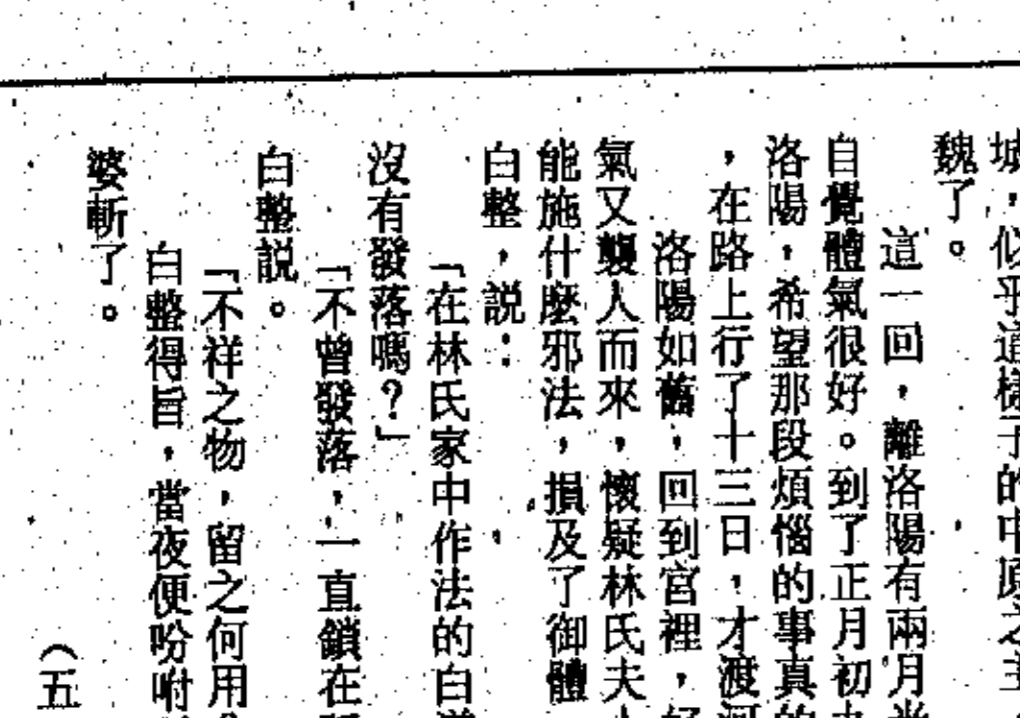 城，似乎這樣子的中原之主
魏了。
這一回，離洛陽有兩月光
自覺體氣很好。到了正月初
洛陽，希望那段煩惱的事真的
，在路上行了十三日，才渡河
洛陽如舊，回到宮裡，好
氣又襲人而來，懷疑林氏夫人
能施什麼邪法，損及了御體
白整，説：
「在林氏家中作法的白
沒有發落嗎？」
「不曾發落，一直鎖在
白整説。
「不祥之物，留之何用
白整得旨，當夜便吩咐
婆斬了。
（五